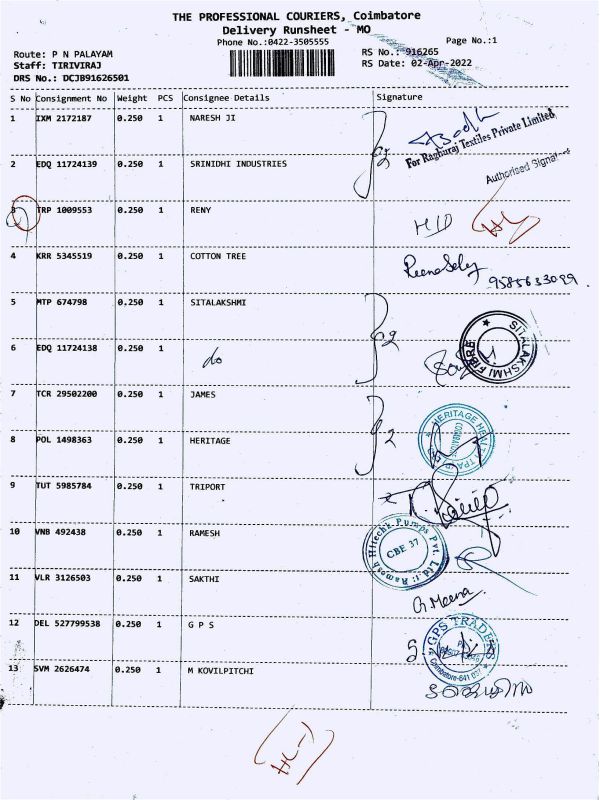 THE PROFESSIONAL COURIERS, Coimbatore
Delivery Runsheet - MO
Phone No.:0422-3505555
Page No.:1
Route: P N PALAYAM
RS No.: 916265
Staff: TIRIVIRAJ
RS Date: 02-Apr-2022
DRS No.: DCJB91626501
S No Consignment No Weight PCS Consignee Details Signature
1 IXM 2172187 0.250 1 NARESH JI
For Raghuraj Textiles Private Limited
2 EDQ 11724139 0.250 1 SRINIDHI INDUSTRIES 2
Authorised Signat
3 TRP 1009553 0.250 1 RENY
4 KRR 5345519 0.250 1 COTTON TREE
9585633099
5 MTP 674798 0.250 1 SITALAKSHMI 2
SITALAKSHMI FIBRE
6 EDQ 11724138 0.250 1 do
7 TCR 29502200 0.250 1 JAMES
8 POL 1498363 0.250 1 HERITAGE 2
HERITAGE
9 TUT 5985784 0.250 1 TRIPORT
10 VNB 492438 0.250 1 RAMESH
Ramesh Hitechk Pumps Pvt. Ltd.
CBE 37
11 VLR 3126503 0.250 1 SAKTHI
G. Meena
12 DEL 527799538 0.250 1 G P S
GPS TRADERS
Coimbatore-641 037
13 SVM 2626474 0.250 1 M KOVILPITCHI